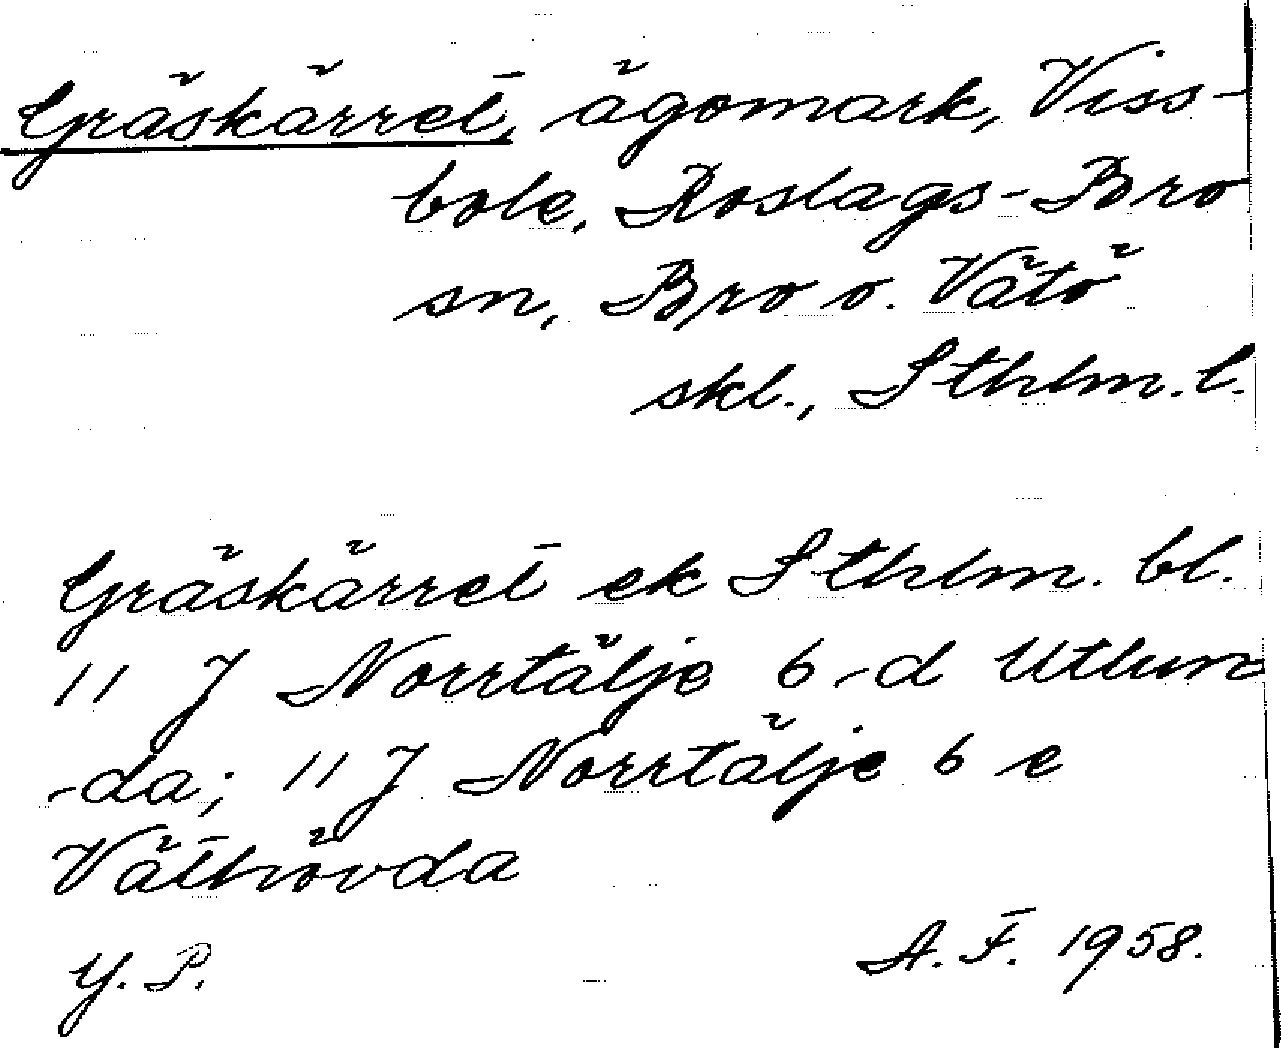 Gräskärret, ägomark, Viss-
bole, Roslags-Bro
sn, Bro o. Vätö
skl., Sthlm. l.
Gräskärret ek Sthlm. bl.
11 J Norrtälje 6-d Utlun
-da; 11 J Norrtälje 6 e
Väthövda
Y. P. A. F. 1958.